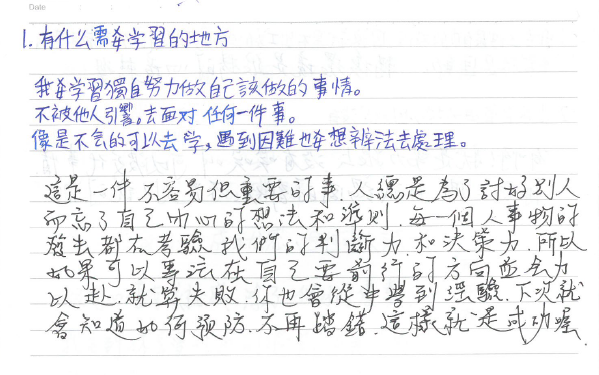 Date
1. 有什么需要学習的地方
我要学習獨自努力做自己該做的事情。
不被他人引響。去面对任何一件事。
像是不会的可以去学，遇到困難也要想辦法去處理。
這是一件不容易但重要的事 人總是為了討好別人
而忘了自己內心的想法和準則 每一個人事物的
發生都在考驗我們的判斷力和決策力.所以
如果可以專注在自己要前行的方向並全力
以赴.就算失敗.你也會從中學到經驗.下次就
會知道如何預防.不再踏錯.這樣就是成功喔